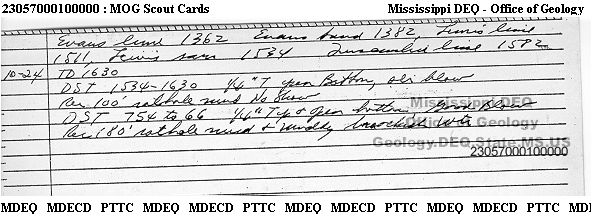 23057000100000 : MOG Scout Cards Mississippi DEQ - Office of Geology
Evans lime 1362 Evans sand 1382, Lewis lime
1511, Lewis sand 1534 Tuscumbia lime 1582
10-24 TD 1630
DST 1534-1630 1/4" T open Bottom, sli blow
Rec 100' rathole mud No Show
DST 754 to 66 1/4" Top & open bottom Good Blow
Rec 180' rathole mud & muddy brackish wtr
Mississippi DEQ
Office of Geology
Geology.DEQ.State.MS.US
23057000100000
MDEQ MDECD PTTC MDEQ MDECD PTTC MDEQ MDECD PTTC MDEQ MDECD PTTC MDEQ